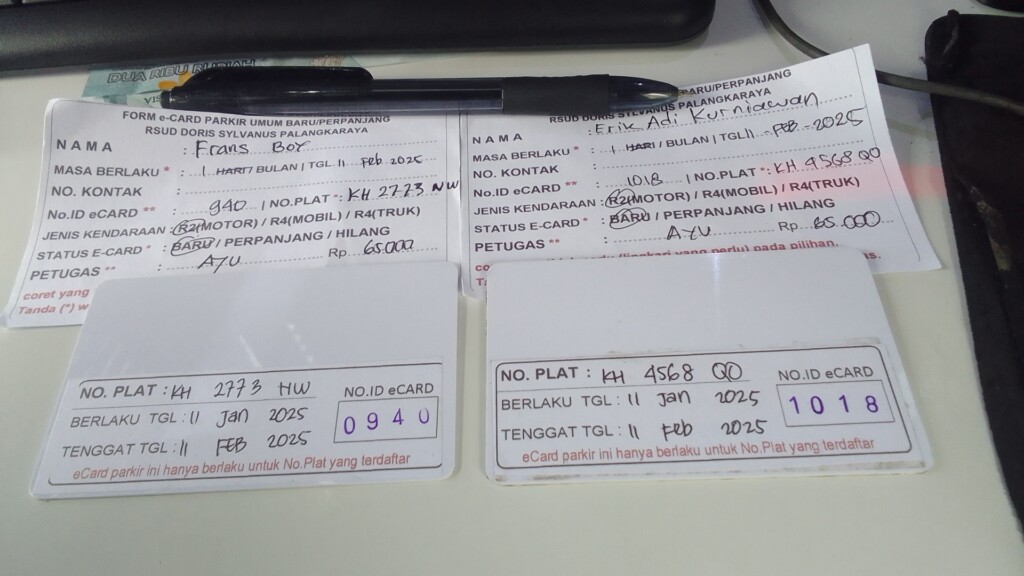 DUA RIBU RUPIAH
FORM e-CARD PARKIR UMUM BARU/PERPANJANG
RSUD DORIS SYLVANUS PALANGKARAYA
NAMA : Frans Boy
MASA BERLAKU * : 1 HARI / BULAN | TGL 11 Feb 2025
NO. KONTAK :
No.ID eCARD ** : 940 | NO.PLAT *: KH 2773 NW
JENIS KENDARAAN : R2(MOTOR) / R4(MOBIL) / R4(TRUK)
STATUS E-CARD * : BARU / PERPANJANG / HILANG
PETUGAS ** : AYU Rp 65.000
coret yang
Tanda (*) w
BARU/PERPANJANG
RSUD DORIS SYLVANUS PALANGKARAYA
NAMA : Erik Adi Kurniawan
MASA BERLAKU * : 1 HARI / BULAN | TGL 11 - FEB - 2025
NO. KONTAK :
No.ID eCARD ** : 1018 | NO.PLAT *: KH 4568 QO
JENIS KENDARAAN : R2(MOTOR) / R4(MOBIL) / R4(TRUK)
STATUS E-CARD * : BARU / PERPANJANG / HILANG
PETUGAS ** : AYU Rp 65.000
yang perlu) pada pilihan.
NO. PLAT : KH 2773 NW
BERLAKU TGL : 11 Jan 2025
TENGGAT TGL : 11 FEB 2025
NO.ID eCARD
0940
eCard parkir ini hanya berlaku untuk No.Plat yang terdaftar
NO. PLAT : KH 4568 QO
BERLAKU TGL : 11 Jan 2025
TENGGAT TGL : 11 Feb 2025
NO.ID eCARD
1018
eCard parkir ini hanya berlaku untuk No.Plat yang terdaftar